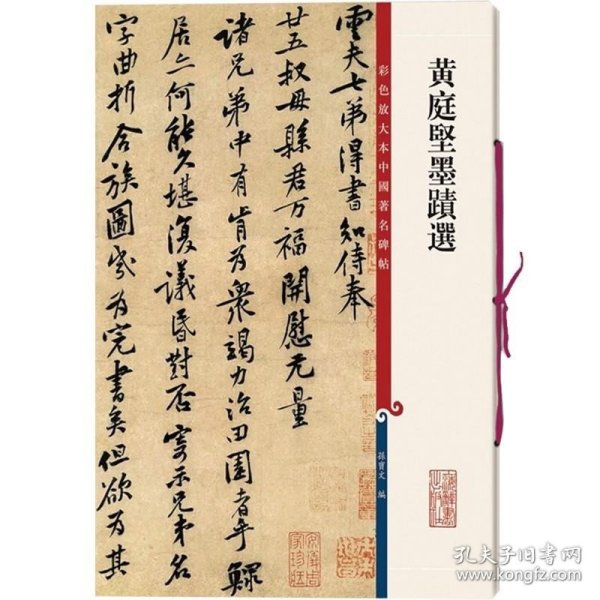 黄庭堅墨蹟選
彩色放大本中國著名碑帖
孫寶文 編
雲夫七弟得書知侍奉
廿五叔母縣君万福開慰无量
諸兄弟中有肯为衆竭力治田園者乎鰥
居亦何能久堪復議昏對否寄示兄弟名
字曲折合族圖岁为完書矣但欲为其
孔夫子旧书网
www.kongfz.com